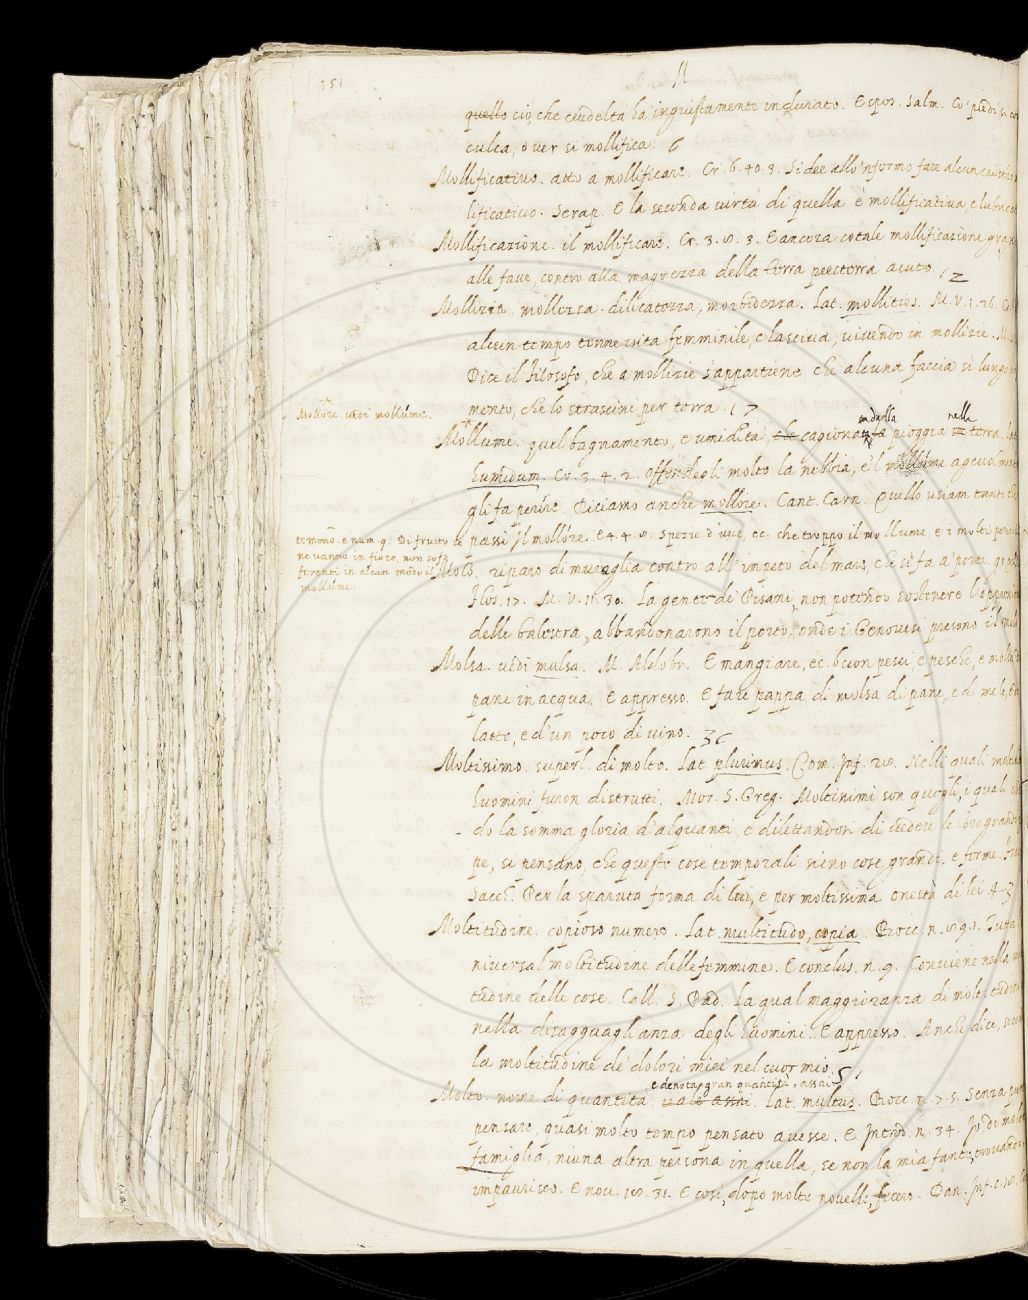 751
quello ciò, che crudeltà ha ingiustamente ingiuriato. Espos. Salm. Co' piedi si
culca, over si mollifica. 6
Mollificativo. atto a mollificare. Cr. 6. 40. 3. Si dee allo 'nfermo fare alcun
lificativo. Serap. E la seconda virtù di quella è mollificativa, e
Mollificazione. il mollificare. Cr. 3. 3. E ancora cotale mollificazione
alle fave, contro alla magrezza della terra presterrà aiuto.
Mollizia. mollezza. dilicatezza, morbidezza. Lat. mollities. M. V. 1. 76.
alcun tempo tenne vita femminile, e lasciva, vivendo in mollizie.
Dice il Filosofo, che a mollizie s'appartiene che alcuna faccia sì lungo
mento, che lo strascini per terra. 17
Mollore. vedi mollume.
sudalla nella
Mollume. quel bagnamento, e umidità, che cagiona la pioggia terra.
humidum. Cr. 3. 4. 2. Offendegli molto la nebbia, e 'l mollume agevolmente
gli fa perire. Diciamo anche mollore. Cant. Carn. Quello usiam tanti
passi Il mollore. E 4. 4. Spezie d'uve, ec. che troppo il mollume, e i molti
temono. e num. 9. Di frutto
ne vanno in fiore, non
ferenti in alcun modo il
mollume.
Molo. riparo di muraglia contro all'impeto del mare, che si fa a' porti.
Flos. 17. M. V. 11. 30. La gente de' Pisani, non potendo sostenere l'
delle balestra, abbandonarono il porto, onde i Genovesi presono il
Molsa. vedi mulsa. M. Aldobr. E mangiare, ec. buon pesci e pesche, e
pane in acqua. E appresso. E fare pappa di molsa di pane, e di mele,
latte, e d'un poco di vino. 36
Moltissimo. superl. di molto. Lat. plurimus. Com. Inf. 20. Nelli quali
huomini furon distrutti. Mor. S. Greg. Moltissimi son quegli, i quali
do la somma gloria d'alquanti, e dilettandosi di vedere le loro grandi
pe, si pensano, che queste cose temporali sieno cose grandi, e ferme.
Sacch. Per la sparuta forma di lui, e per moltissima onestà di lei 43
Moltitudine. copioso numero. Lat. multitudo, copia. Bocc. n.
niversal moltitudine delle femmine. E conclus. n. 9. Conviene nella
tudine delle cose. Coll. S. Pad. La qual maggioranza di moltitudine
nella disagguaglianza degli huomini. E appresso. Anche dice,
la moltitudine de' dolori miei nel cuor mio. 51
e denota gran quantità, assai
Molto. nome di quantità. vale assai. Lat. multus. Bocc. n. 7. 5. Senza
pensare, quasi molto tempo pensato avesse. E Introd. n. 34. Io di
famiglia, niuna altra persona in quella, se non la mia fante, trovando,
impaurisco. E nov. 100. 31. E così, dopo molte novelle, fecero. Dan. Inf. c.